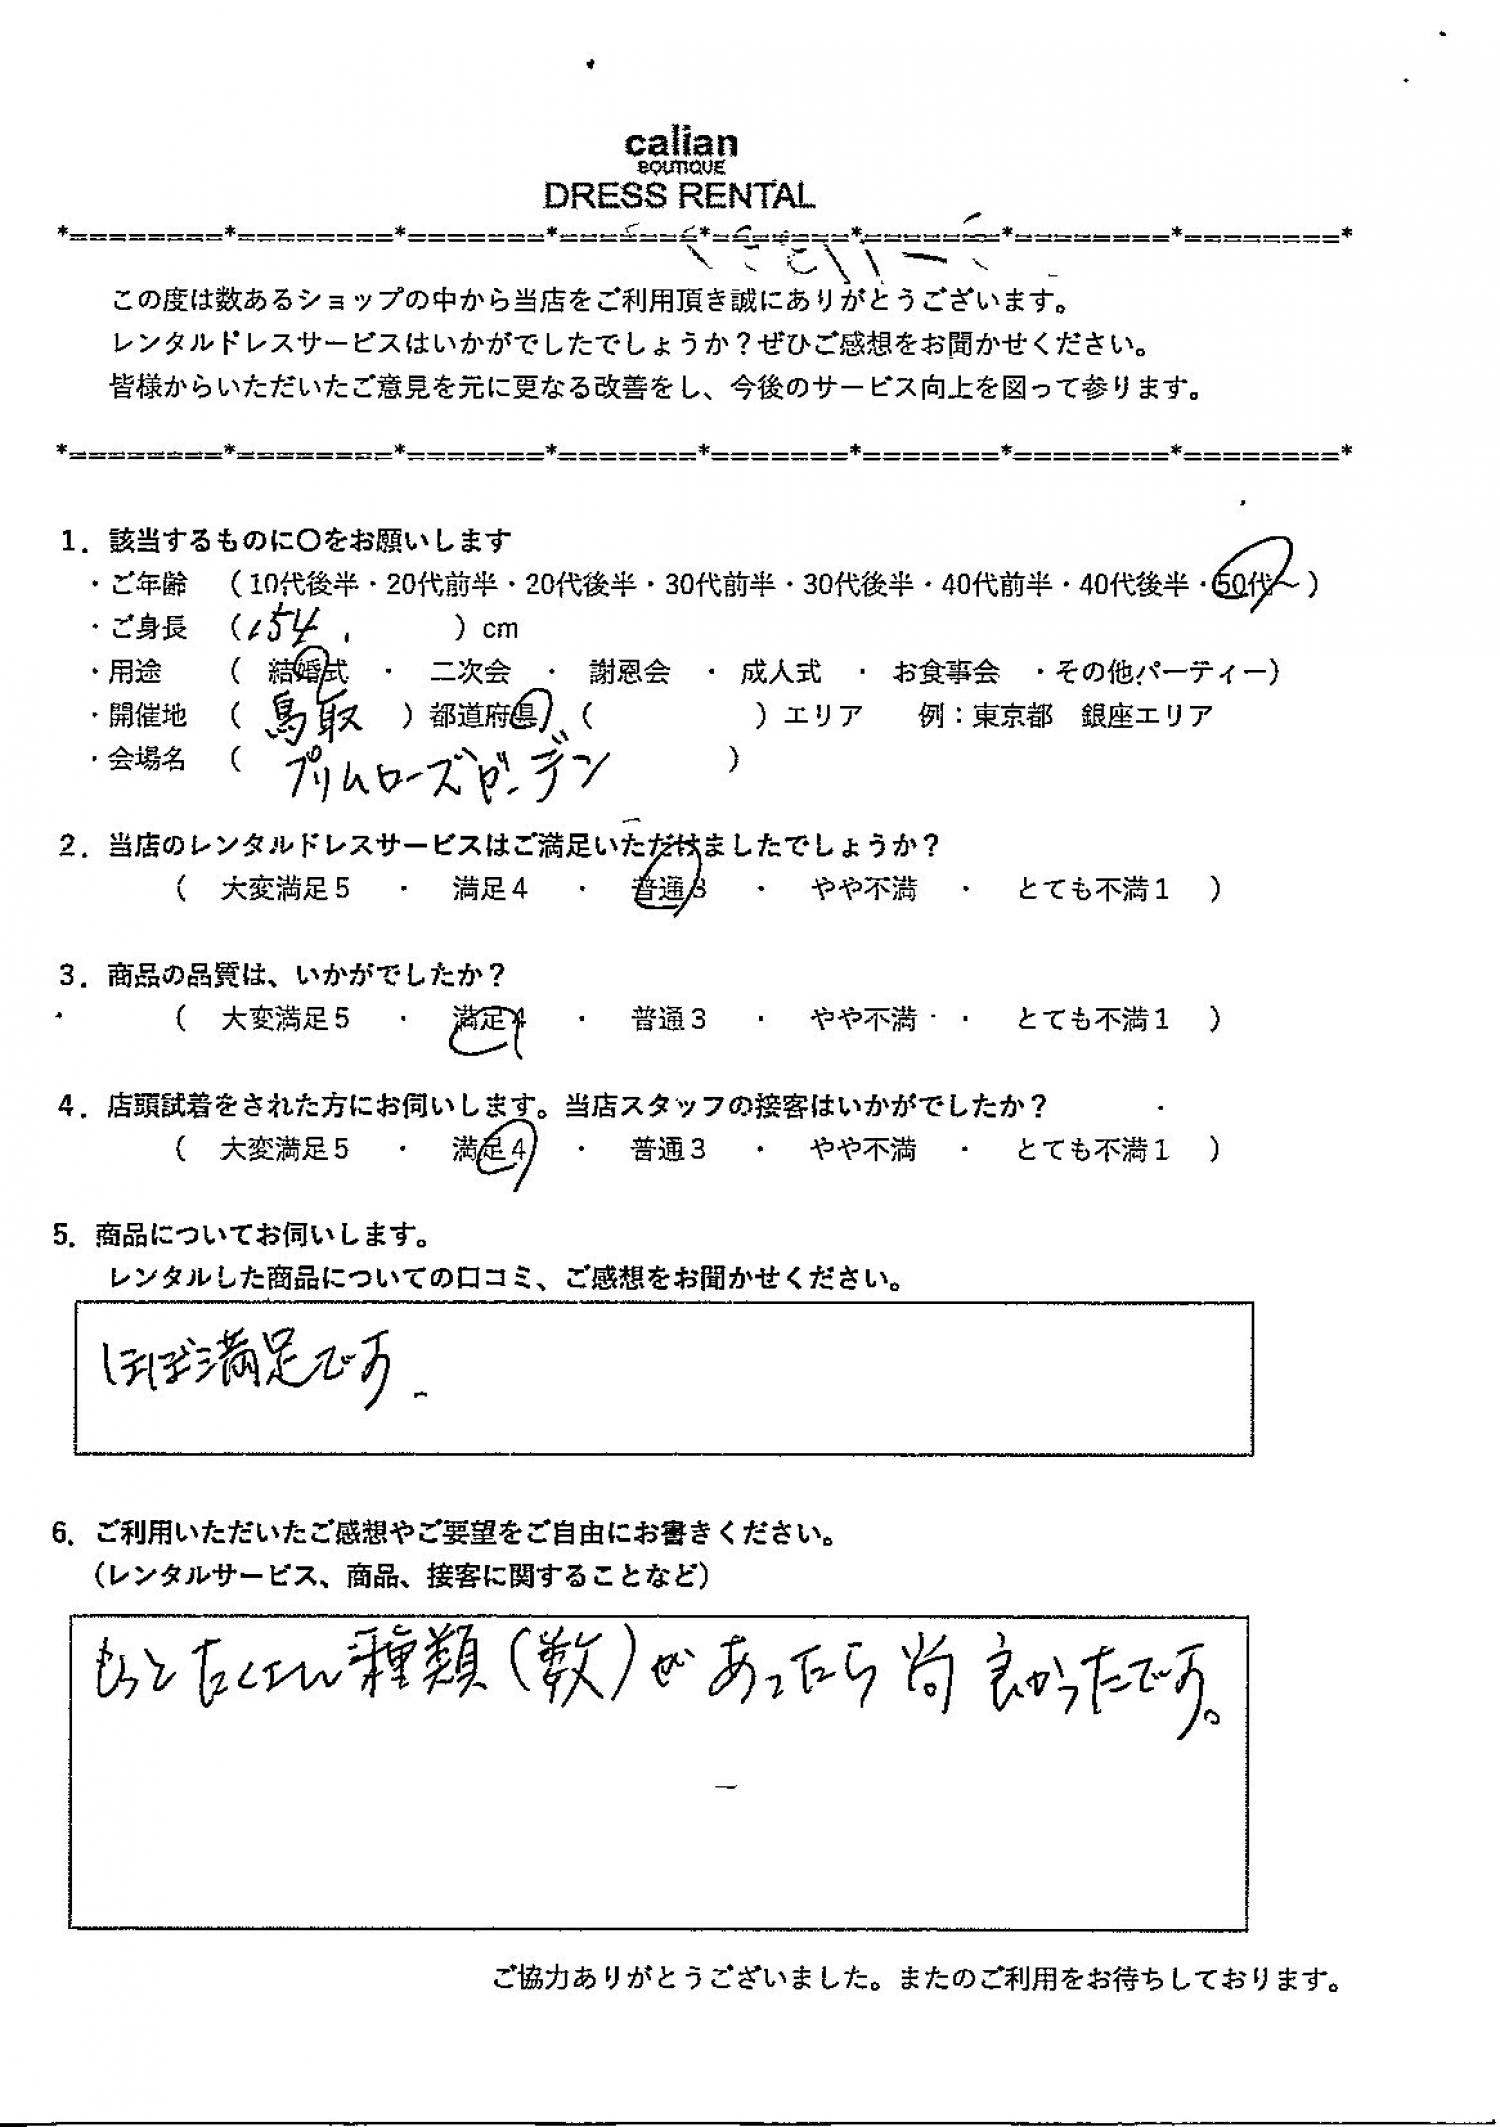 calian
BOUTIQUE
DRESS RENTAL
*========*========*=======*=======*=======*=======*========*========*
この度は数あるショップの中から当店をご利用頂き誠にありがとうございます。
レンタルドレスサービスはいかがでしたでしょうか？ぜひご感想をお聞かせください。
皆様からいただいたご意見を元に更なる改善をし、今後のサービス向上を図って参ります。
*========*========*=======*=======*=======*=======*========*========*
1．該当するものに〇をお願いします
・ご年齢 （10代後半・20代前半・20代後半・30代前半・30代後半・40代前半・40代後半・50代～）
・ご身長 （154. ）cm
・用途 （ 結婚式 ・ 二次会 ・ 謝恩会 ・ 成人式 ・ お食事会 ・その他パーティー）
・開催地 （ 鳥取 ）都道府県 （ ）エリア 例：東京都 銀座エリア
・会場名 （ プリムローズガーデン ）
2．当店のレンタルドレスサービスはご満足いただけましたでしょうか？
（ 大変満足５ ・ 満足４ ・ 普通３ ・ やや不満 ・ とても不満１ ）
3．商品の品質は、いかがでしたか？
（ 大変満足５ ・ 満足４ ・ 普通３ ・ やや不満 ・ とても不満１ ）
4．店頭試着をされた方にお伺いします。当店スタッフの接客はいかがでしたか？
（ 大変満足５ ・ 満足４ ・ 普通３ ・ やや不満 ・ とても不満１ ）
5．商品についてお伺いします。
レンタルした商品についての口コミ、ご感想をお聞かせください。
ほぼ満足です.
6．ご利用いただいたご感想やご要望をご自由にお書きください。
（レンタルサービス、商品、接客に関することなど）
もっとたくさん種類（数）があったら尚良かったです。
ご協力ありがとうございました。またのご利用をお待ちしております。